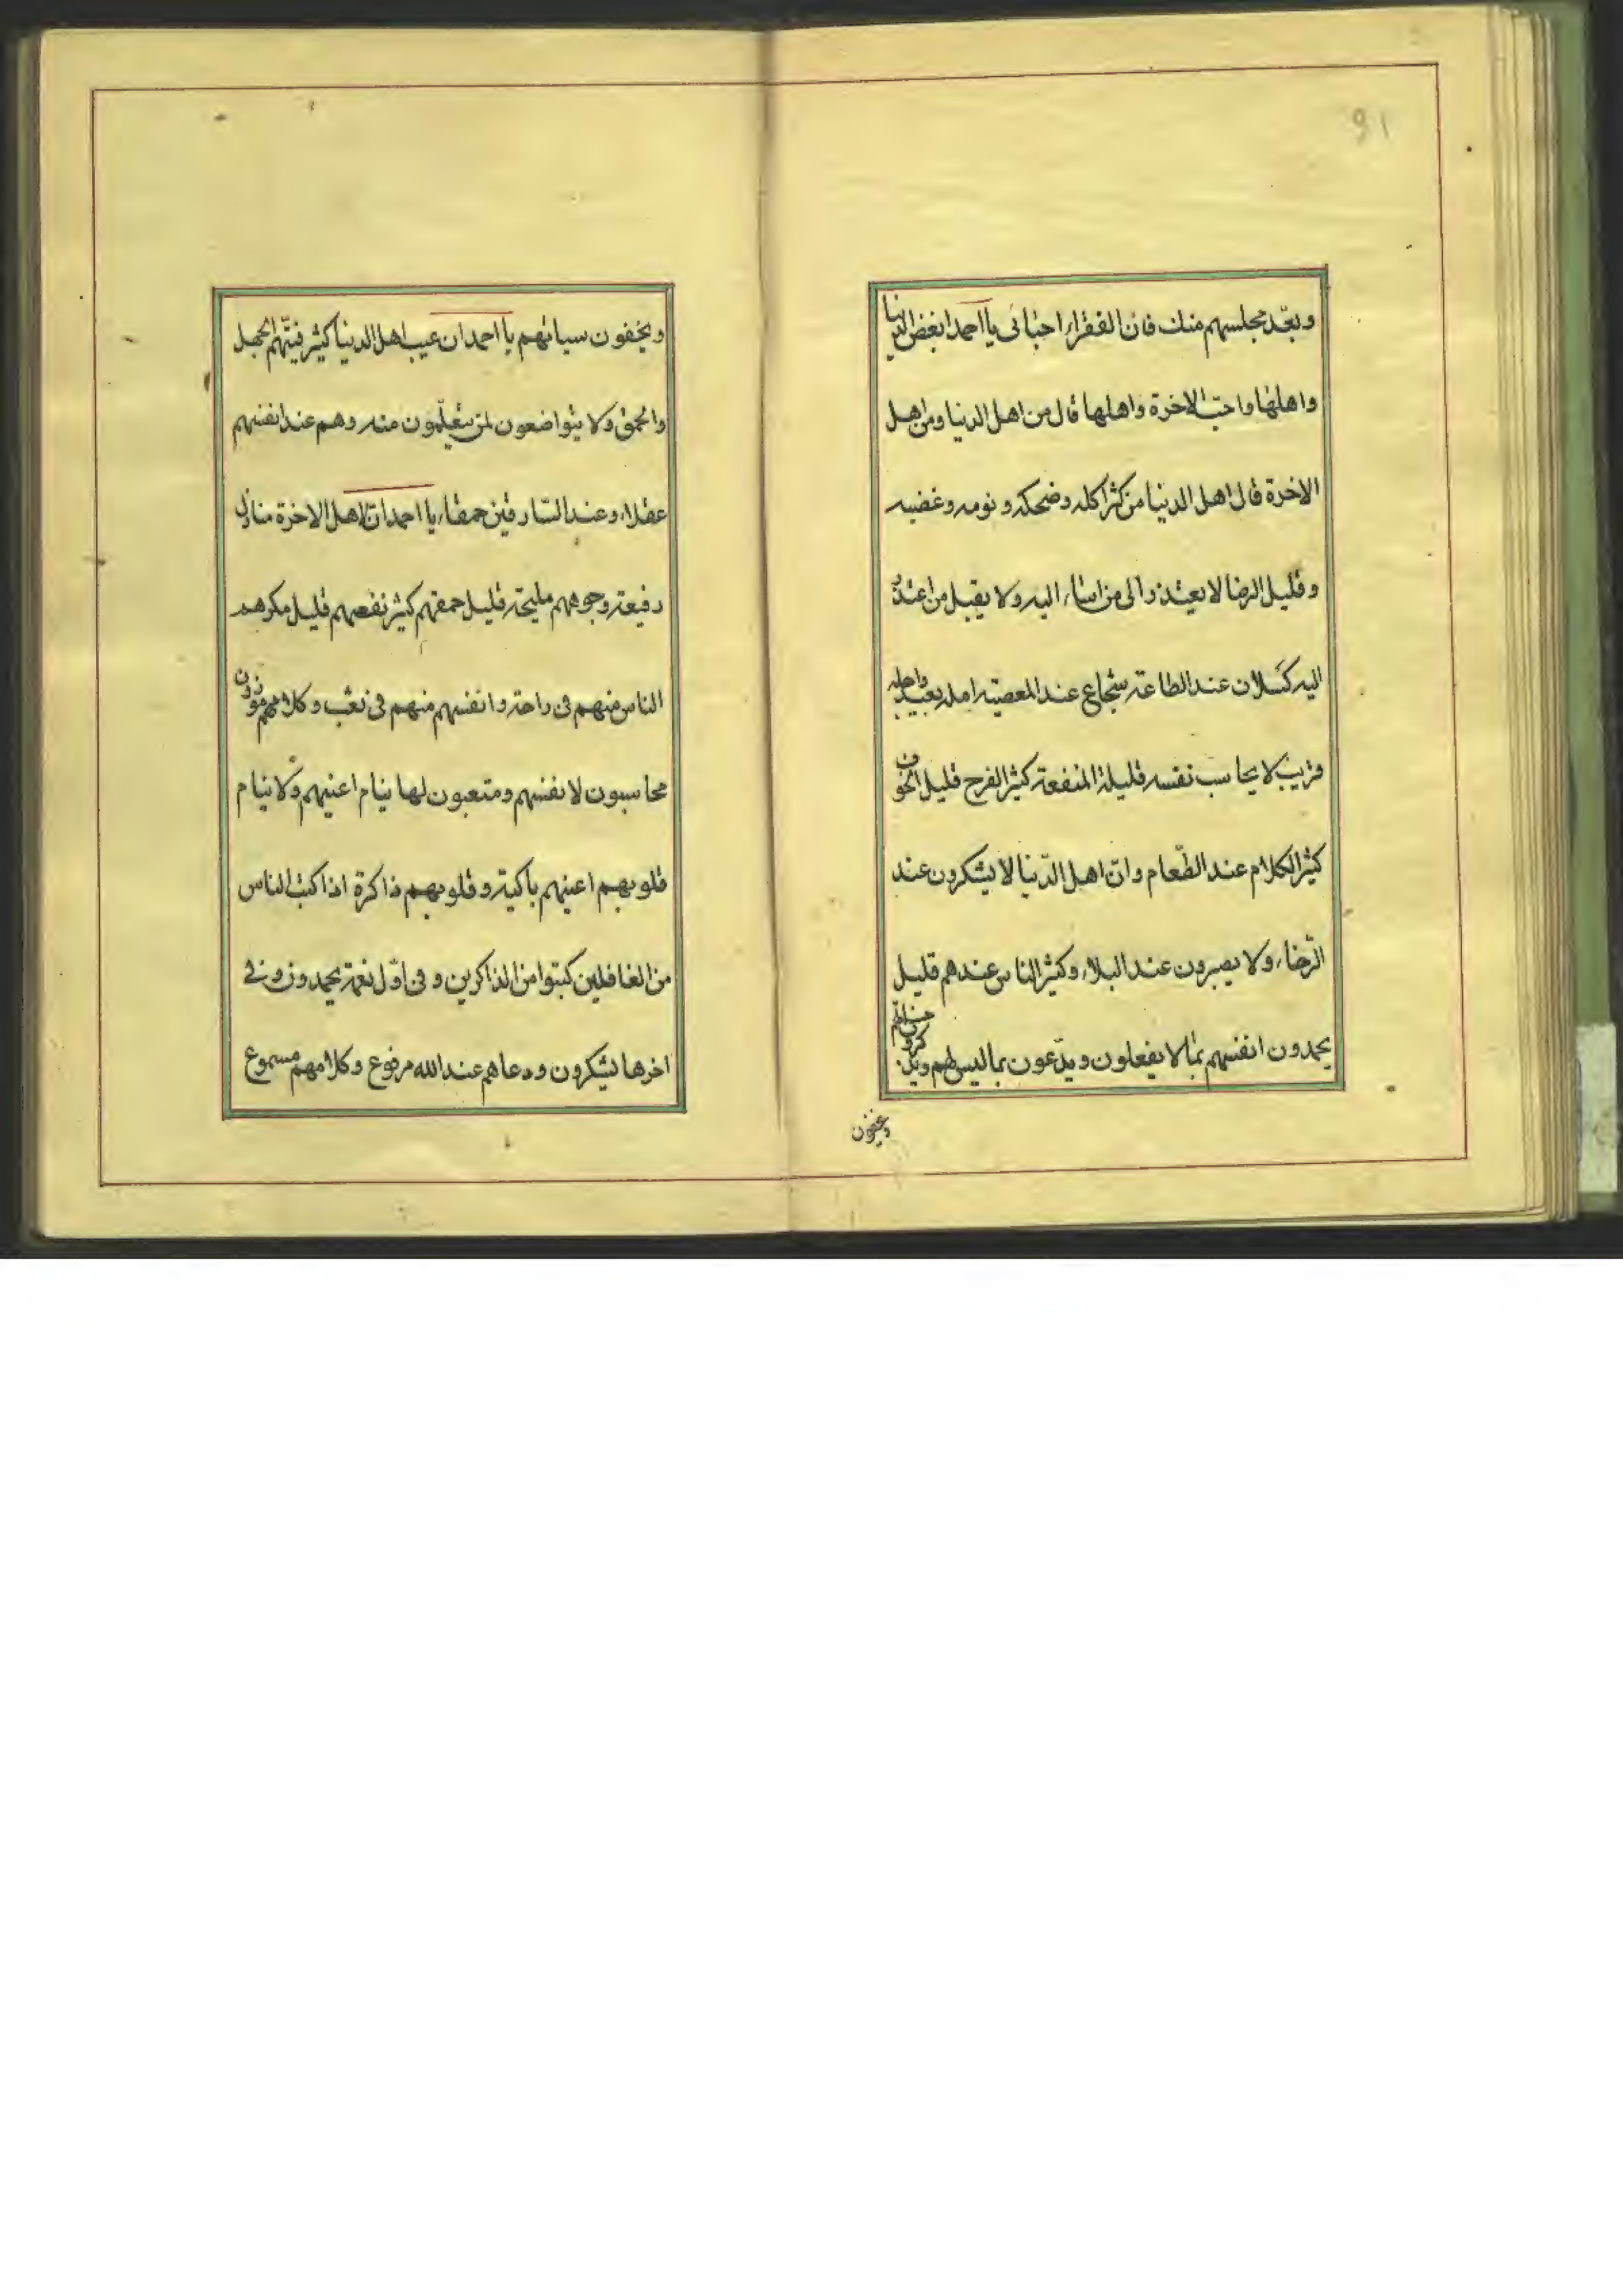 91
وبعّد مجلسهم منك فان الفقراء احبائى يا احمد ابغض الدنيا
واهلها واحب الاخرة واهلها قال من اهل الدنيا ومن اهل
الاخرة قال اهل الدنيا من كثر اكله وضحكه ونومه وغضبه
وقليل الرضا لا يعتذر الى من اساء اليه ولا يقبل من اعتذر
اليه كسلان عند الطاعة شجاع عند المعصية امله بعيد واجله
قريب لا يحاسب نفسه قليلة المنفعة كثير الفرح قليل الخوف
كثير الكلام عند الطّعام وانّ اهل الدّنيا لا يشكرون عند
الرّخاء ولا يصبرون عند البلاء وكثير الناس عندهم قليل
يحمدون انفسهم بما لا يفعلون ويدّعون بما ليس لهم ويذكرون
ويخفون
ويخفون سياتهم يا احمد ان عيب اهل الدنيا كثير فيهم الجهل
والحمق ولا يتواضعون لمن يتعلّمون منه وهم عند انفسهم
عقلاء وعند العارفين حمقاء يا احمد ان اهل الاخرة منازل
رفيعة وجوههم مليحة قليل حمقهم كثير نفعهم قليل مكرهم
الناس منهم فى راحة وانفسهم منهم فى تعب وكلامهم موزون
محاسبون لانفسهم ومتعبون لها ينام اعينهم ولا ينام
قلوبهم اعينهم باكية وقلوبهم ذاكرة اذا كتب الناس
من الغافلين كتبوا من الذاكرين وفى اوّل نعمة يحمدون وفى
اخرها يشكرون ودعاهم عند الله مرفوع وكلامهم مسموع